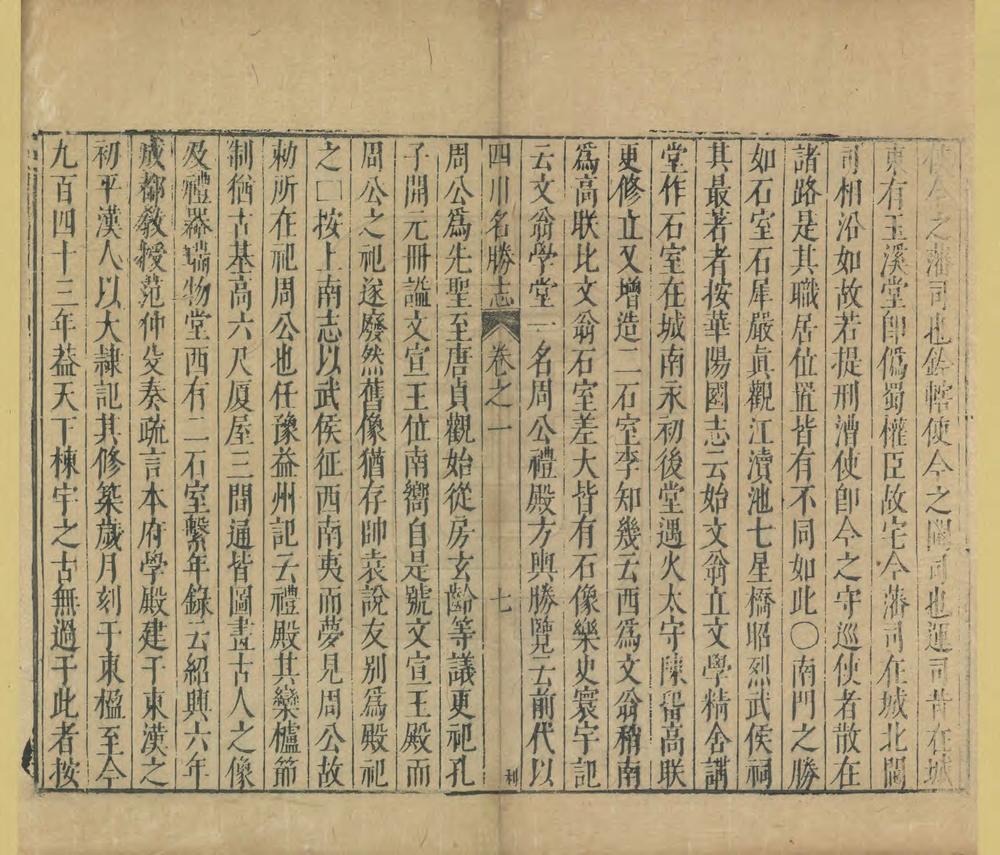 使今之藩司也鈐轄使今之閫司也運司昔在城
東有玉溪堂卽僞蜀權臣故宅今藩司在城北閫
司相沿如故若提刑漕使卽今之守巡使者散在
諸路是其職居位置皆有不同如此○南門之勝
如石室石犀嚴眞觀江瀆池七星橋昭烈武侯祠
其最著者按華陽國志云始文翁立文學精舍講
堂作石室在城南永初後堂遇火太守陳畱高联
更修立又增造二石室李知幾云西爲文翁稍南
爲高联比文翁石室差大皆有石像樂史寰宇記
云文翁學堂一名周公禮殿方輿勝覽云前代以
四川名勝志 卷之一 七 刊
周公爲先聖至唐貞觀始從房玄齡等議更祀孔
子開元冊謚文宣王位南嚮自是號文宣王殿而
周公之祀遂廢然舊像猶存帥袁說友别爲殿祀
之□按上南志以武侯征西南夷而夢見周公故
勑所在祀周公也任豫益州記云禮殿其欒櫨節
制猶古基高六尺厦屋三間通皆圖畫古人之像
及禮器瑞物堂西有二石室繫年錄云紹興六年
成都敎授范仲殳奏疏言本府學殿建于東漢之
初平漢人以大隷記其修築歲月刻于東楹至今
九百四十三年葢天下棟宇之古無過于此者按